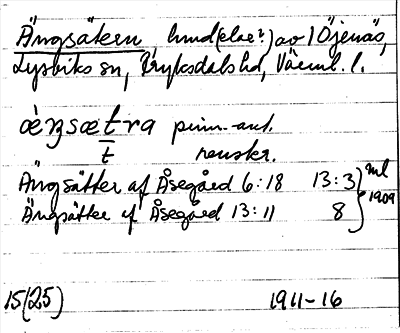 Ängsätern hmd(elae?) av 1 Öjenäs,
Lysviks sn, Fryksdals hd, Värml. l.
æ̀ŋsætra pinn-ant.
t renskr.
Ängsätter af Åsegård 6:18 13:3 } ml
Ängsätter af Åsegård 13:11 8 } 1909
15(25) 1911-16